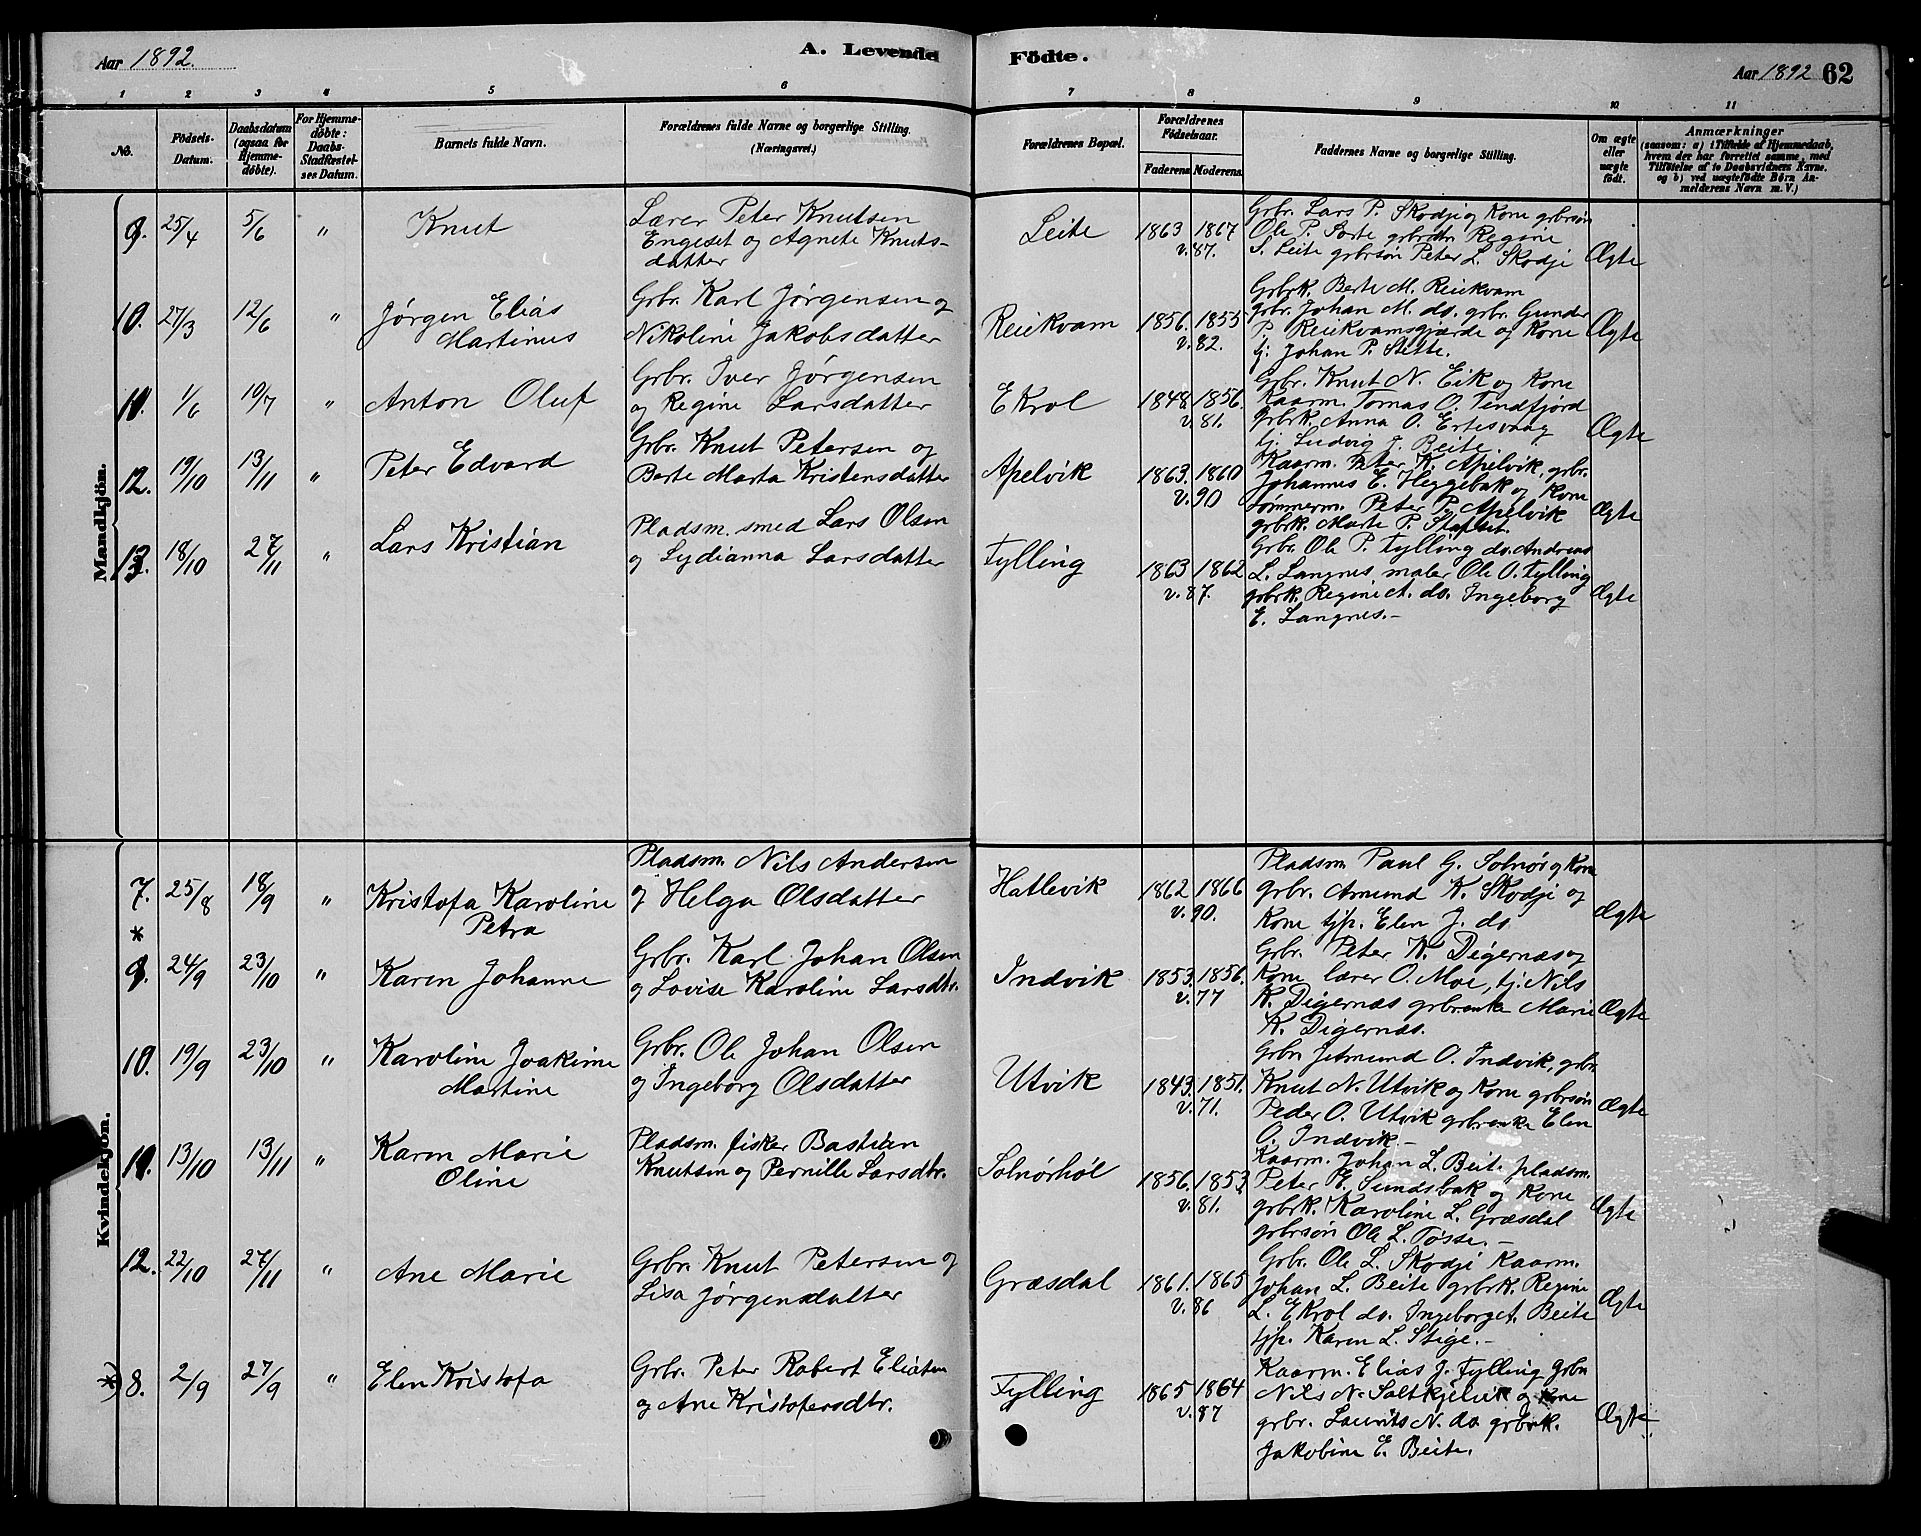 Aar 1892. A. Levende Födte. Aar 1892 62
1 2 3 4 5 6 7 8 9 10 11
No. Födsels-Datum. Daabsdatum (ogsaa for Hjemme-döbte). For Hjemme-döbte: Daabs-Stadfæstel-ses Datum. Barnets fulde Navn. Forældrenes fulde Navne og borgerlige Stilling. (Næringsvei.) Forældrenes Bopæl. Forældrenes Födselsaar. Faderens Moderens Faddernes Navne og borgerlige Stilling. Om ægte eller uægte født. Anmærkninger
(saasom: a) i Tilfælde af Hjemmedaab, hvem der har forrettet samme, med Tilföielse af to Daabsvidners Navne, og b) ved uægtefödte Børn Anmelderens Navn m. V.)
Mandkjön.
9. 25/4 5/6 " Knut
Lærer Peter Knutsen
Engeset og Agnete Knuts-
datter
Leite 1863 1867
v. 87.
Grbr. Lars P. Skodje og Kone grbrsön
Ole P. Sorte grbrdtr Regine
S. Leite grbrsön Peter L. Skodje
Ægte
10. 27/3 12/6 " Jørgen Elias
Martinus
Grbr. Karl Jørgensen og
Nikoline Jakobsdatter
Reiekvam 1856. 1855
v. 82.
Grbrk. Berte M. Reiekvam
grbr. Johan M. do. grbr. Gunder
P. Reiekvamsgjærde og Kone
tj. Johan P. Stette.
Ægte
11. 1/6 10/7 " Anton Oluf
Grbr. Iver Jørgensen
og Regine Larsdatter
Ekrol 1848. 1856.
v. 81.
Grbr. Knut N. Eik og Kone
Kaarm. Tomas O. Tendfjord
grbrk. Anna O. Ertesvaag
tj. Ludvig J. Beite.
Ægte
12. 19/10 13/11 " Peter Edvard
Grbr. Knut Petersen og
Berte Marta Kristensdatter
Apelvik 1863. 1860
v. 90
Kaarm. Peter K. Apelvik, grbr.
Johannes E. Heggebak og Kone
tømmerm. Peter P. Apelvik
grbrk. Marte P. Stafset.
Ægte
13. 18/10 27/11 " Lars Kristian
Pladsm. smed Lars Olsen
og Lydianna Larsdatter
Fylling 1863 1862
v. 87.
Grbr. Ole P. Fylling do. Andreas
L. Langnes, maler Ole O. Fylling
grbrk. Regine A. do. Ingeborg
E. Langnes.-
Ægte
Kvindekjön.
7. 25/8 18/9 " Kristofa Karoline
Petra
Pladsm. Nils Andersen
og Helga Olsdatter
Hatlevik 1862 1866
v. 90.
Pladsm. Paul G. Solnör og Kone
Grbr. Amund K. Skodje og
Kone tjp. Elen J. do
Ægte
*
9. 24/9 23/10 " Karen Johanne
Grbr. Karl Johan Olsen
og Lovise Karoline Larsdtr.
Indvik 1853. 1856.
v. 77
Grbr. Peter K. Digernæs og
Kone lærer O. Moe, tj. Nils
K. Digernæs grbrenke Marie
K. Digernæs.
Ægte
10. 19/9 23/10 " Karoline Joakime
Martine
Grbr. Ole Johan Olsen
og Ingeborg Olsdatter
Utvik 1843. 1851.
v. 71.
Grbr. Jetmund O. Indvik, grbr.
Knut N. Utvik og Kone grbrsön
Peder O. Utvik grbrenke Elen
O. Indvik.-
Ægte
11. 13/10 13/11 " Karen Marie
Oline
Pladsm. fisker Bastian
Knutsen og Pernille Larsdtr.
Solnørhøl 1856. 1853.
v. 81.
Kaarm. Johan L. Beite pladsm.
Peter E. Sundsbak og Kone
grbrk. Karoline L. Græsdal
grbrsön Ole L. Tøsse.-
Ægte
12. 22/10 27/11 " Ane Marie
Grbr. Knut Petersen og
Lisa Jørgensdatter
Græsdal 1861. 1865
v. 86
Grbr. Ole L. Skodje Kaarm.
Johan L. Beite grbrk. Regine
L. Ekrol do. Ingeborg et. Beite
tjp. Karen L. Stige.-
Ægte
*) 8. 2/9 27/9 " Elen Kristofa
Grbr. Peter Robert Eliasen
og Ane Kristofersdtr.
Fylling 1865 1864
v. 87
Kaarm. Elias J. Fylling Grbr.
Nils N. Saltkjelvik og Kone
grbr. Laurits N. do grbrk.
Jakobine E. Beite.
Ægte